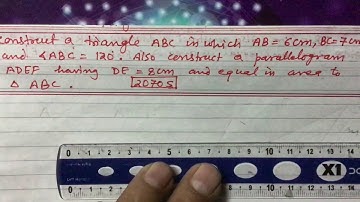 construct a triangle ABC in which AB = 6cm, BC = 7cm
and ∠ABC = 120°. Also construct a parallelogram
ADEF having DE = 8cm and equal in area to
Δ ABC. 2070 S
0 1 2 3 4 5 6 7 8 9 10 11 12 13 14 15
XI
0 1 2 3 4 5 6 7 8 9 10 11 12 13 14 15